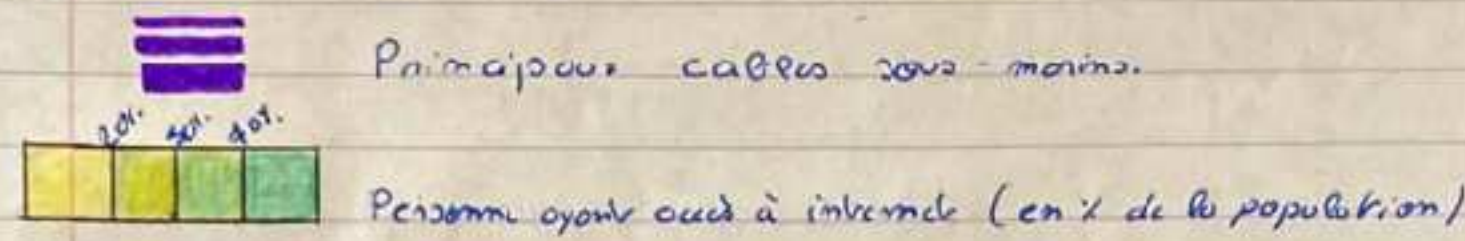 Principaux cables sous-marins.
20%. 50%. 70%.
Personne ayant accès à internet (en % de la population)